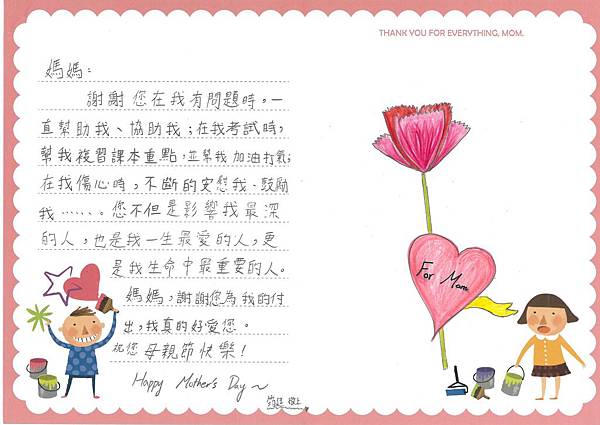 THANK YOU FOR EVERYTHING, MOM.
媽媽：
謝謝您在我有問題時，一
直幫助我、協助我；在我考試時，
幫我複習課本重點，並幫我加油打氣；
在我傷心時，不斷的安慰我、鼓勵
我……。您不但是影響我最深
的人，也是我一生最愛的人，更
是我生命中最重要的人。
媽媽，謝謝您為我的付
出，我真的好愛您。
祝您 母親節快樂！
Happy Mother's Day～
敬上
For Mom